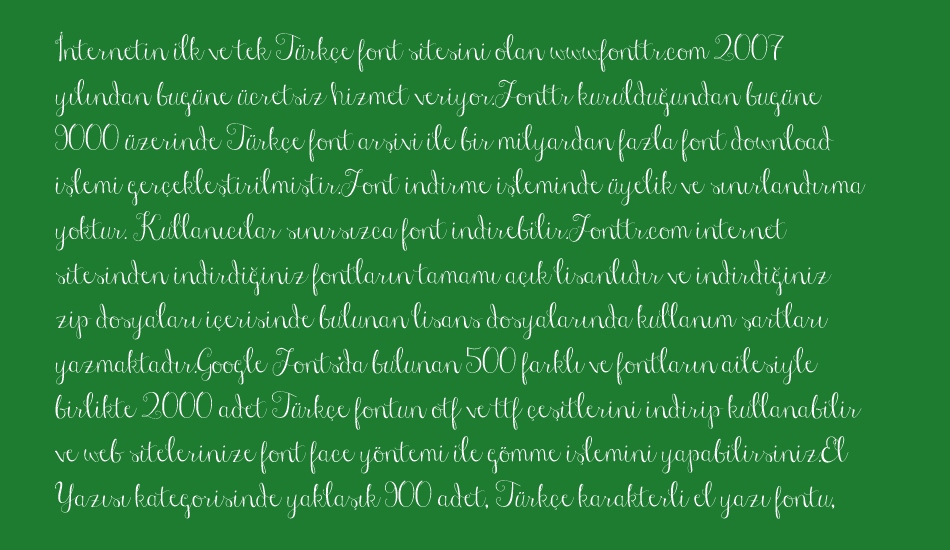 İnternetin ilk ve tek Türkçe font sitesini olan www.fonttr.com 2007
yılından bugüne ücretsiz hizmet veriyor.Fonttr kurulduğundan bugüne
9000 üzerinde Türkçe font arşivi ile bir milyardan fazla font download
işlemi gerçekleştirilmiştir.Font indirme işleminde üyelik ve sınırlandırma
yoktur. Kullanıcılar sınırsızca font indirebilir.Fonttr.com internet
sitesinden indirdiğiniz fontların tamamı açık lisanlıdır ve indirdiğiniz
zip dosyaları içerisinde bulunan lisans dosyalarında kullanım şartları
yazmaktadır.Google Fonts'da bulunan 500 farklı ve fontların ailesiyle
birlikte 2000 adet Türkçe fontun otf ve ttf çeşitlerini indirip kullanabilir
ve web sitelerinize font face yöntemi ile gömme işlemini yapabilirsiniz.El
Yazısı kategorisinde yaklaşık 900 adet, Türkçe karakterli el yazı fontu,